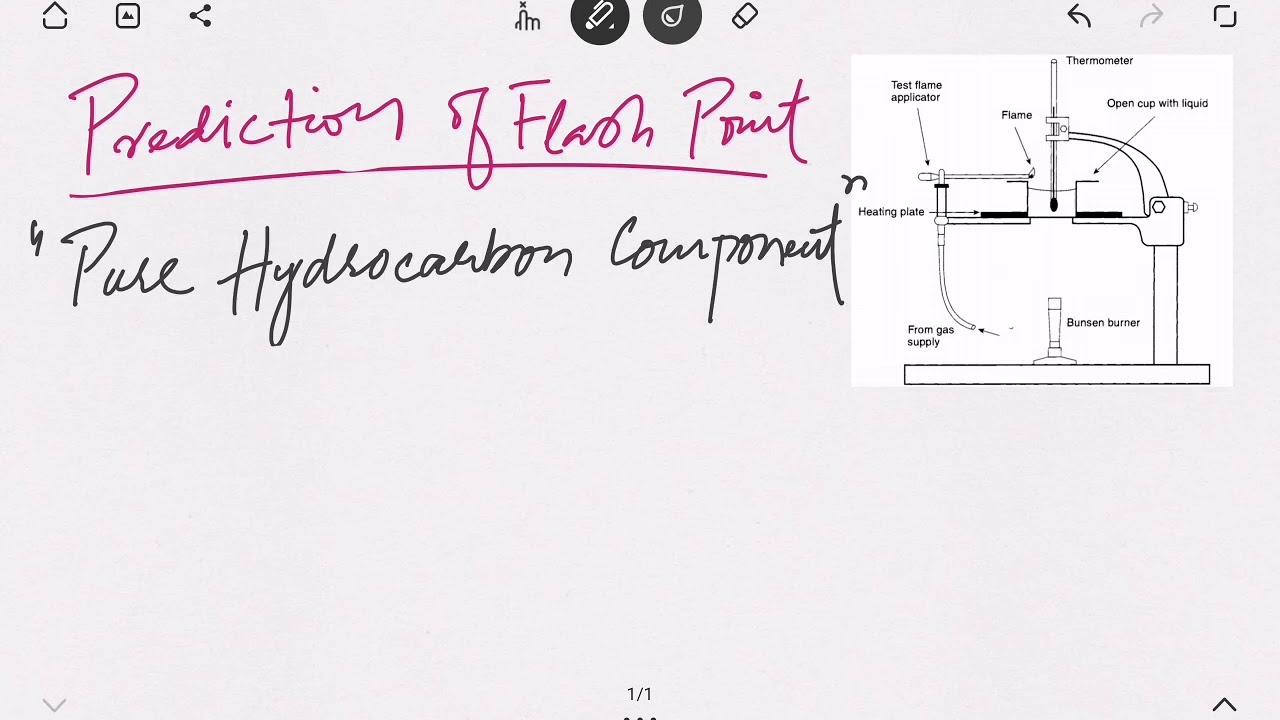 Prediction of Flash Point
"Pure Hydrocarbon Component"
Thermometer
Test flame
applicator
Open cup with liquid
Flame
Heating plate
From gas
supply
Bunsen burner
1/1